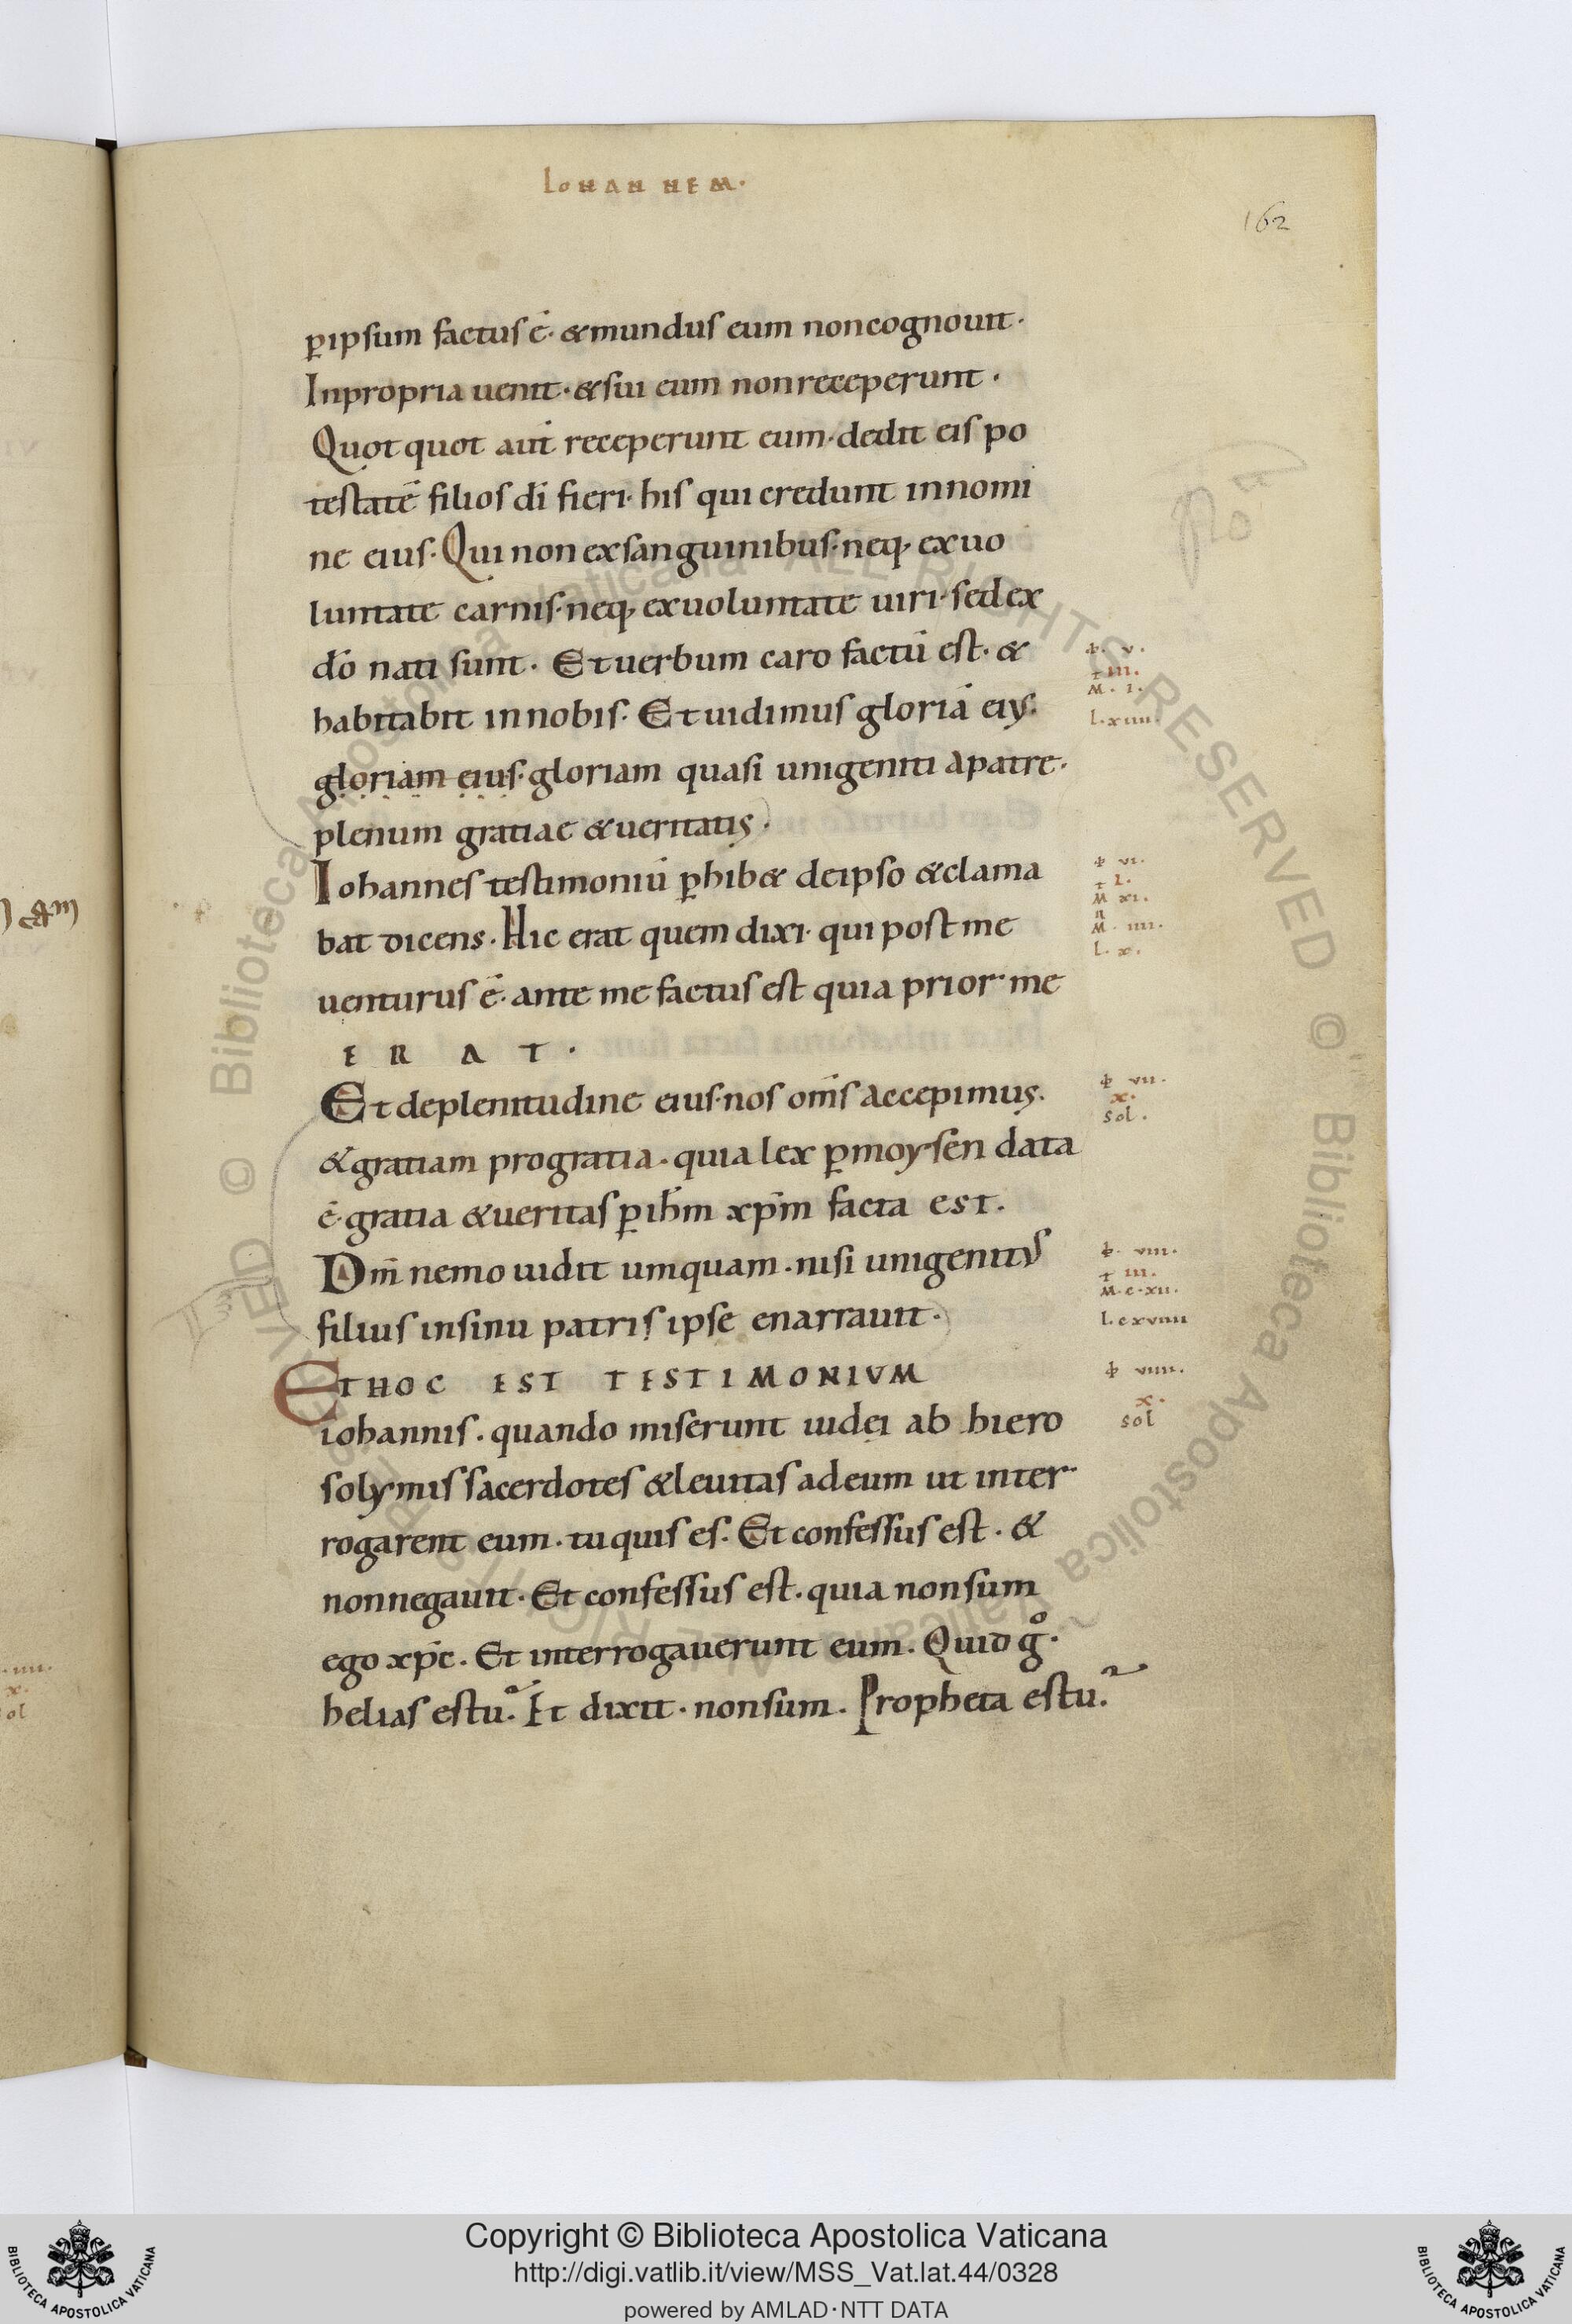 IOHANNEM·
162
p̲ipsum factus ē· & mundus eum non cognouit·
In propria uenit· & sui eum non receperunt·
Quotquot aut̄ receperunt eum· dedit eis po
testatē filios dī fieri· his qui credunt in nomi
ne eius· Qui non ex sanguinibus· neq· ex uo
luntate carnis· neq· ex uoluntate uiri· sed ex
dō nati sunt· Et uerbum caro factū est· &
habitabit in nobis· Et uidimus gloriā eiꝰ·
gloriam eius· gloriam quasi unigeniti a patre·
plenum gratiae & ueritatis·
Iohannes testimoniū p̲hib& de ipso & clama
bat dicens· Hic erat quem dixi· qui post me
uenturus ē· ante me factus est quia prior me
ERAT·
Et de plenitudine eius· nos om̄s accepimus·
& gratiam pro gratia· quia lex p̲ moysen data
ē· gratia & ueritas p̲ ih̄m xp̄m facta est·
Dm̄ nemo uidit umquam· nisi unigenitꝰ
filius in sinu patris ipse enarrauit·
ET HOC EST TESTIMONIVM
iohannis· quando miserunt iudęi ab hiero
solymis sacerdotes & leuitas ad eum ut inter
rogarent eum· tu quis es· Et confessus est· &
non negauit· Et confessus est· quia non sum
ego xp̄c· Et interrogauerunt eum· Quid gͦ·
helias es tu? Et dixit· non sum· Propheta es tu?
v·
+ III·
M· I·
L· xiiii·
vi·
+ I·
M xi·
M· iiii·
L· x·
vii·
x·
sol·
viii·
+ III·
M· c· xii·
L· cxviiii
viiii·
x·
sol
Copyright © Biblioteca Apostolica Vaticana
http://digi.vatlib.it/view/MSS_Vat.lat.44/0328
powered by AMLAD·NTT DATA
BIBLIOTECA APOSTOLICA VATICANA
BIBLIOTECA APOSTOLICA VATICANA